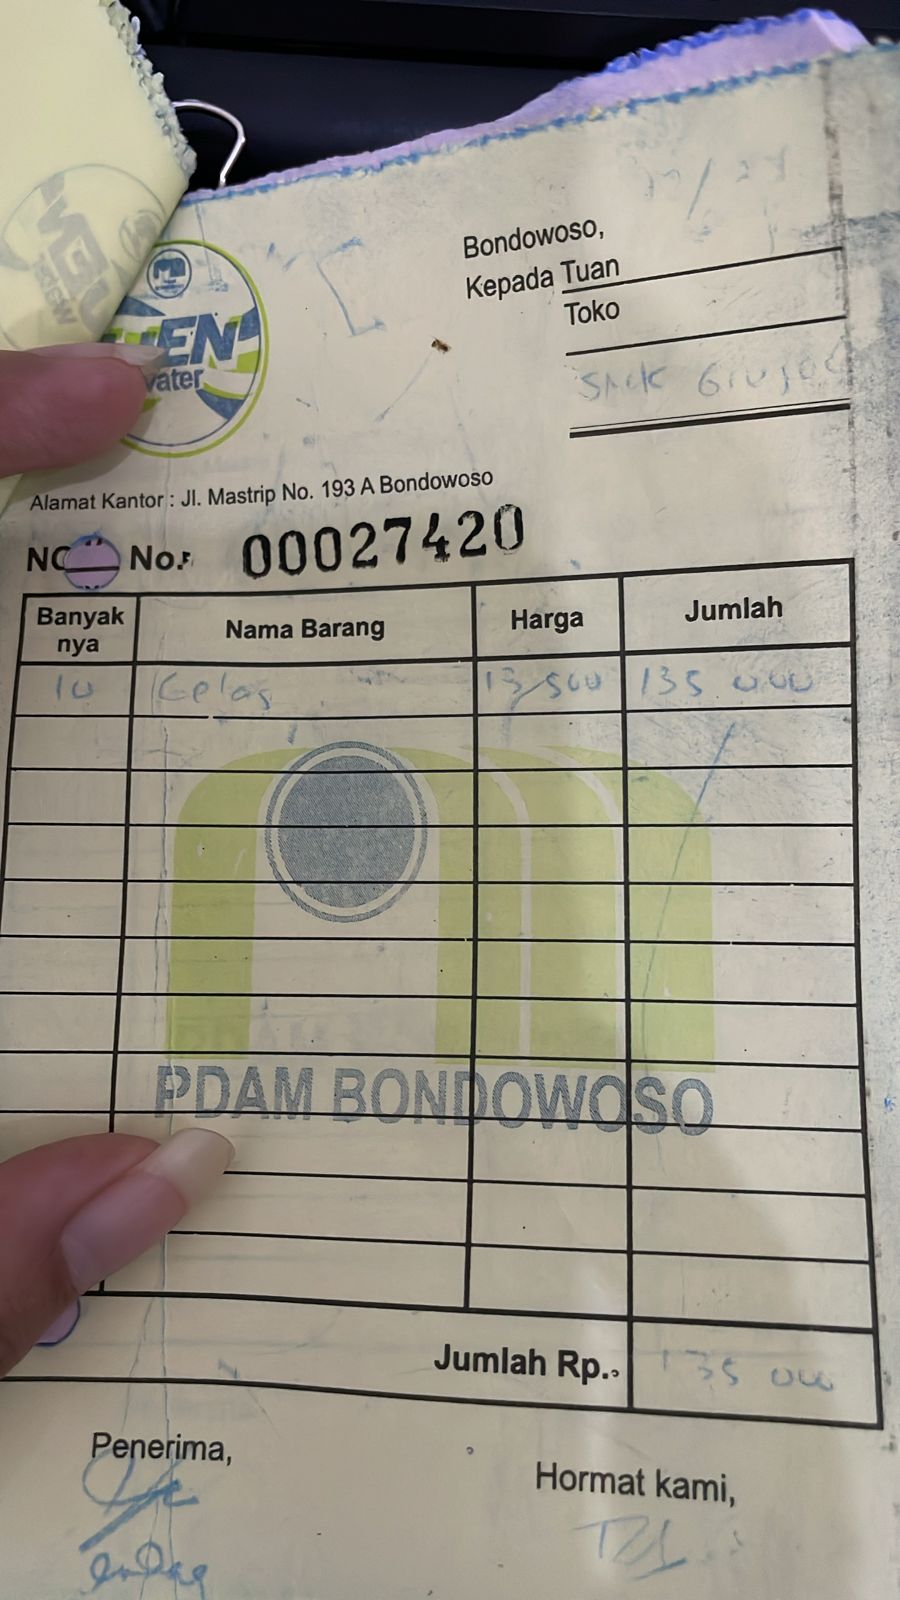 Bondowoso,
Kepada Tuan
Toko
water
Alamat Kantor : Jl. Mastrip No. 193 A Bondowoso
No. 00027420
Banyak nya Nama Barang Harga Jumlah
10 Gelas 13,500 135 000
PDAM BONDOWOSO
Jumlah Rp. 135 000
Penerima,
Hormat kami,